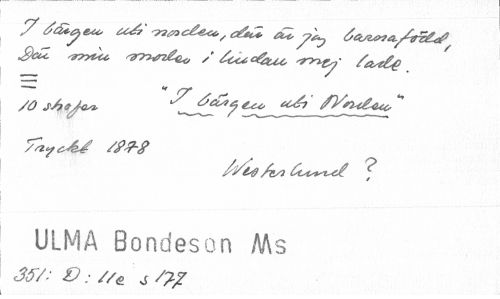 I bärgen uti norden, där är jag barnafödd,
Där min moder i lindan mej lade.
10 strofer "I bärgen uti Norden"
Tryckt 1878
Westerlund ?
ULMA Bondeson Ms
351: D: 11e s 177